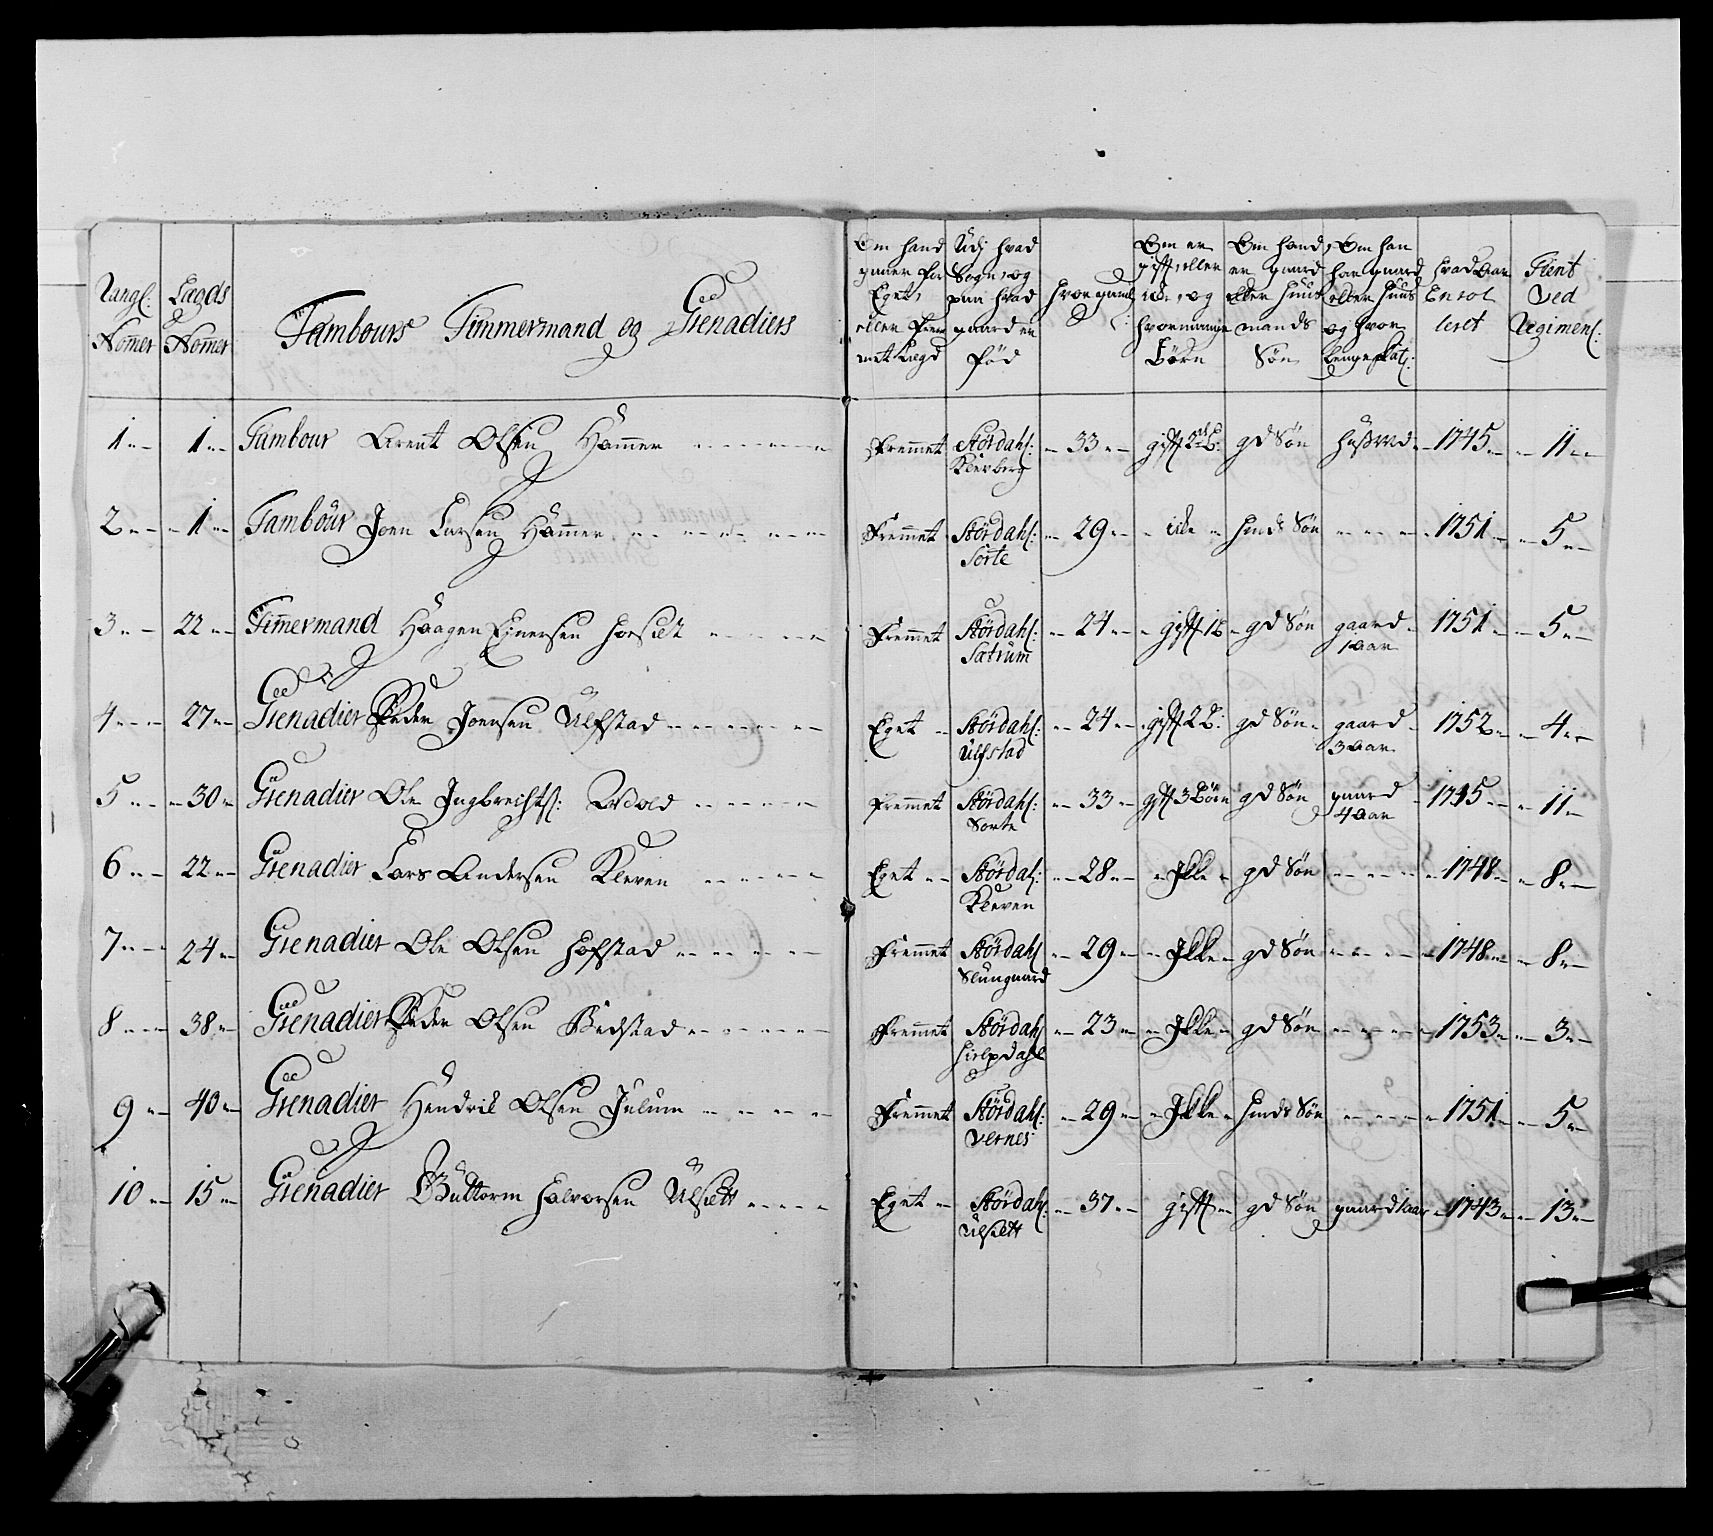 Rangs: Nomer | Lægds Nomer | Tambours Timmermand og Grenadiers | Om hand gaaer for Eget, eller fremmet Lægd | Udj hvad Sogn, og paa hvad gaard er fød | hvor gaml: | Om er gift eller ei, og hvormange Børn | Om hand er gaard eller huus mands Søn | Om han har gaard eller huus og hvor lenge | hvad Aar Enrolleret | Tient Ved Regimen:
1 | 1 | Tambour Arent Olsen Hammer | Fremmet | Stördahl: Klevberg | 33 | gift 2 B: | gd Søn | | 1745 | 11
2 | 1 | Tambour Joen Larsen Hammer | Fremmet | Stördahl: Sorte | 29 | icke | hmds Søn | | 1751 | 5
3 | 22 | Timmermand Haagen Einersen | Fremmet | Stördahl: Satrum | 24 | gift 1 B | gd Søn | gaard 1 Aar | 1751 | 5
4 | 27 | Grenadier Peder Joensen Ulfstad | Eget | Stördahl: Ulfstad | 24 | gift 2 B: | gd Søn | gaard 3 Aar | 1752 | 4
5 | 30 | Grenadier Ole Ingbrechts: Wold | Fremmet | Stördahl: Sorte | 33 | gift 3 Børn | gd Søn | gaard 4 Aar | 1745 | 11
6 | 22 | Grenadier Lars Andersen Kleven | Eget | Stördah: Kleven | 28 | Ikke | gd Søn | | 1748 | 8
7 | 24 | Grenadier Ole Olsen Hofstad | Fremmet | Stördahl Slungaard | 29 | Ikke | gd Søn | | 1748 | 8
8 | 38 | Grenadier Peder Olsen | Fremmet | Stördahl | 23 | Ikke | gd Søn | | 1753 | 3
9 | 40 | Grenadier Hendrik Olsen Julum | Fremmet | Stördahl: Vernes | 29 | Ikke | hmds Søn | | 1751 | 5
10 | 15 | Grenadier Guttorm Halvorsen Ulsett | Eget | Stördahl: Ulsett | 37 | gift | gd Søn | gaard 1 aar | 1743 | 13